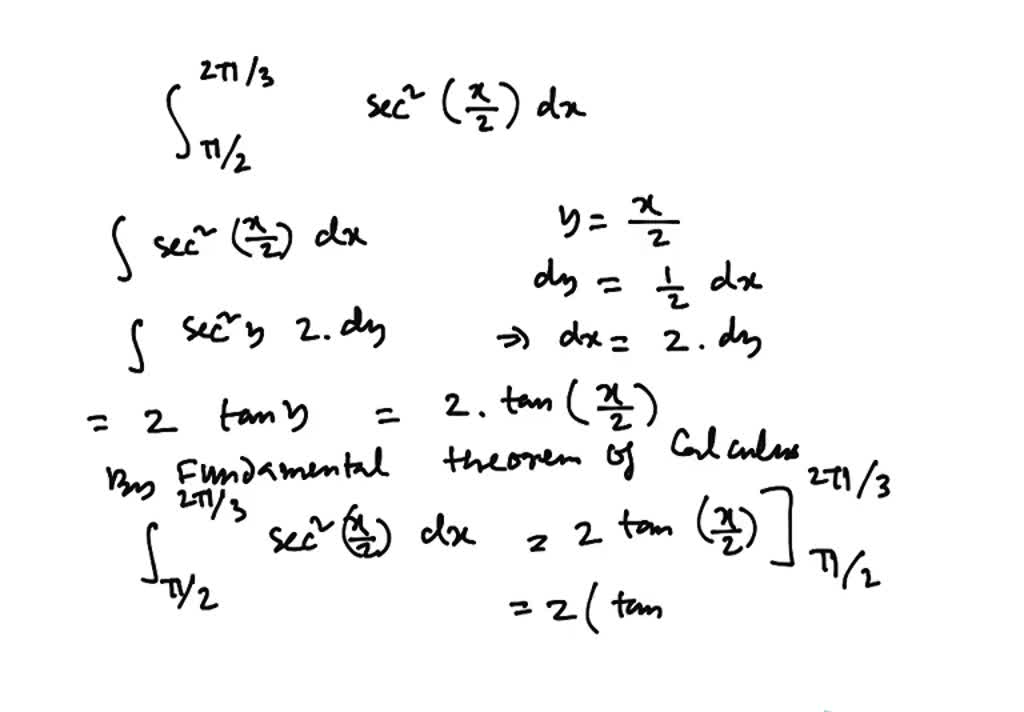 ∫_{π/2}^{2π/3} sec² (x/2) dx
∫ sec² (x/2) dx y = x/2
dy = 1/2 dx
∫ sec² y 2. dy ⇒ dx = 2 . dy
= 2 tan y = 2. tan (x/2)
By Fundamental theorem of Calculus
∫_{π/2}^{2π/3} sec² (x/2) dx = 2 tan (x/2) ]_{π/2}^{2π/3}
= 2 ( tan